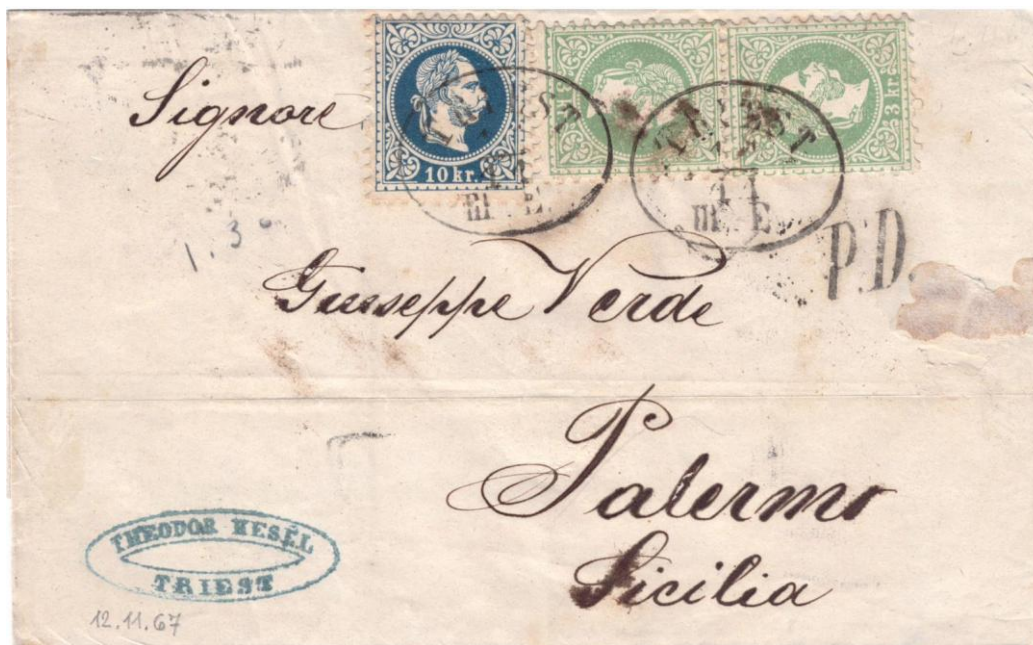 Signore
10 kr.
3 kr.
TRIEST
TRIEST
11
III. E.
P.D.
Giuseppe Verde
Palermo
Sicilia
THEODOR HESEL
TRIEST
12.11.67